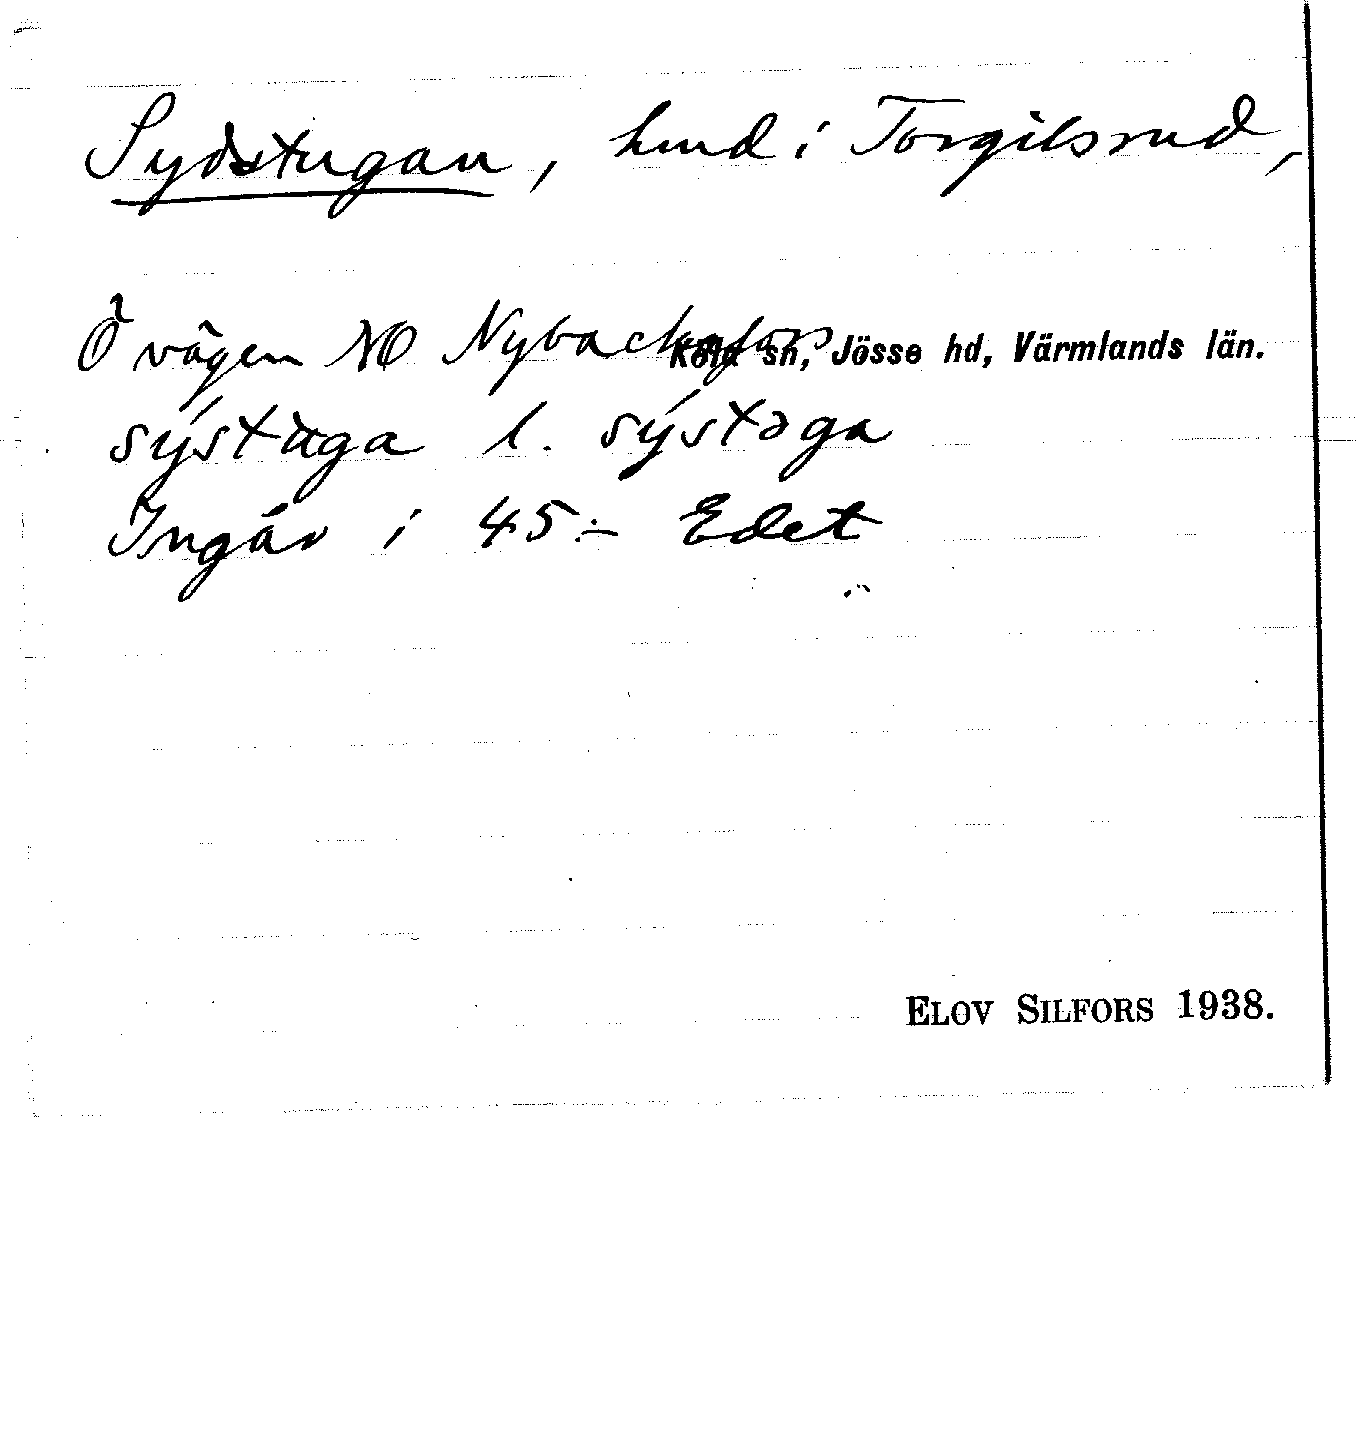 Sydstugan, hmd i Torgilsrud,
Ö vägen NO Nybackafors
Köla sn, Jösse hd, Värmlands län.
sýstùga l. sýstəga
Ingår i 45:- Edet
ELOV SILFORS 1938.